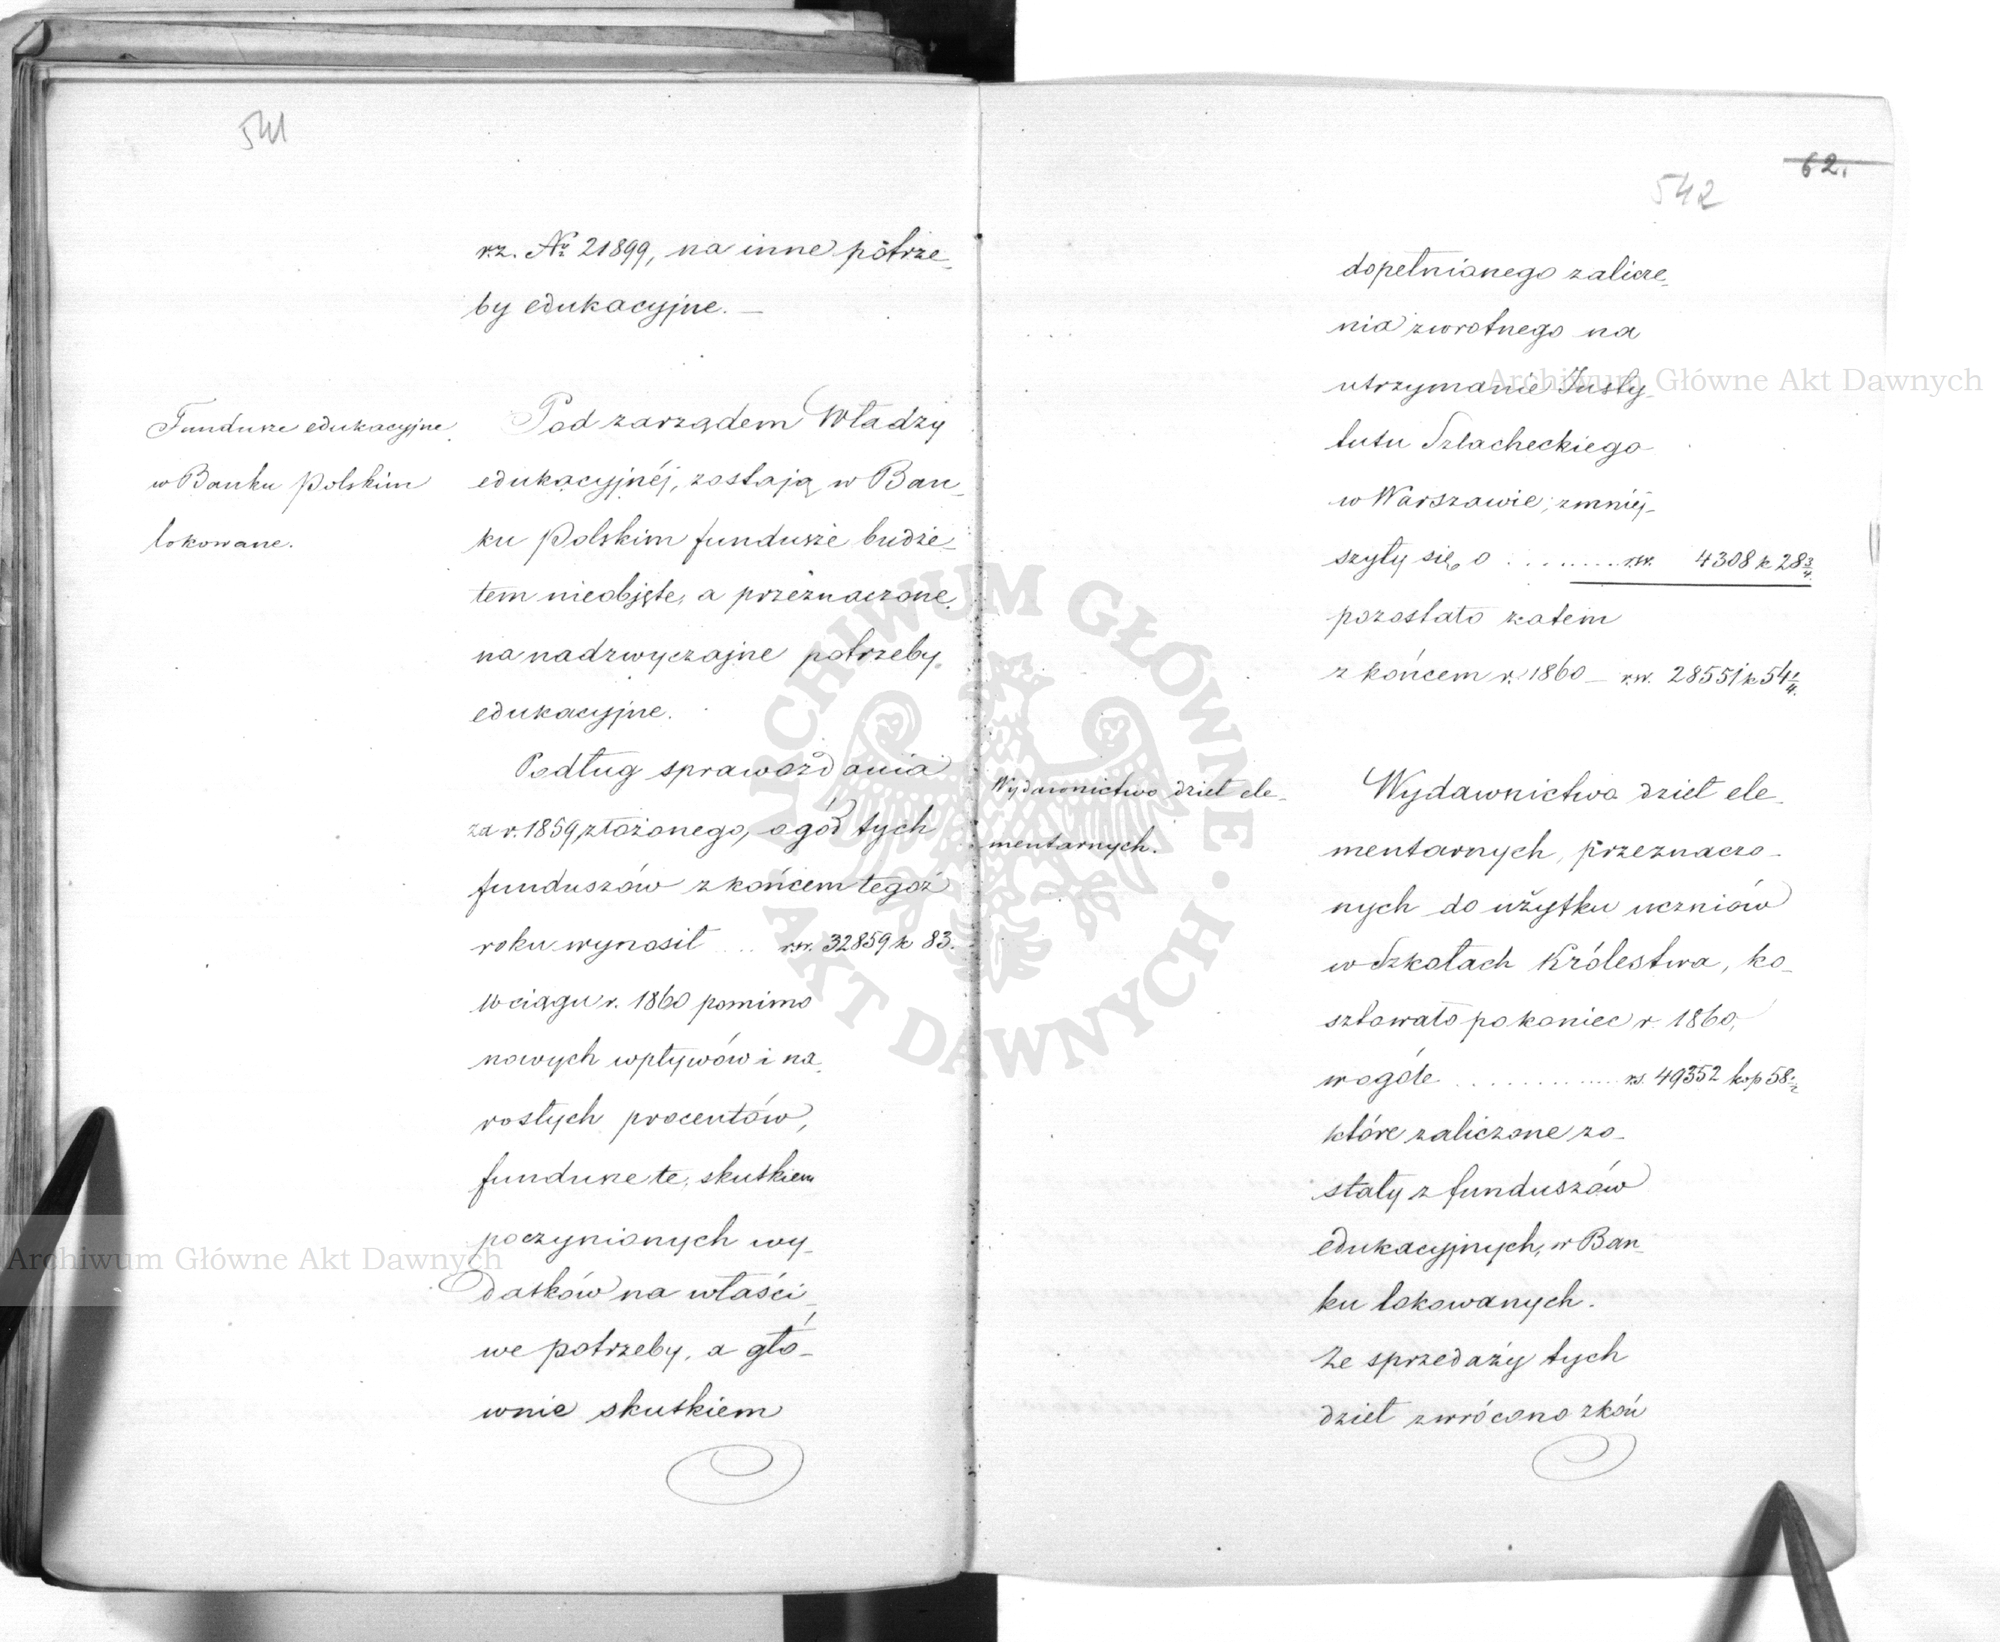 541
rz. № 21899, na inne potrze-
by edukacyjne. —
Fundusze edukacyjne
w Banku Polskim
lokowane.
Pod zarządem Władzy
edukacyjnéj, zostają w Ban-
ku Polskim fundusze budże-
tem nieobjęte, a przeznaczone
na nadzwyczajne potrzeby
edukacyjne.
Podług sprawozdania
za r. 1859 złożonego, ogół tych
funduszów z końcem tegoż
roku wynosił ... rsr. 32859 k 83.
W ciągu r. 1860 pomimo
nowych wpływów i na-
rosłych procentów,
fundusze te, skutkiem
poczynionych wy-
datków na właści-
we potrzeby, a głó-
wnie skutkiem
62.
542
dopełnionego zalicze-
nia zwrotnego na
utrzymanie Insty-
tutu Szlacheckiego
w Warszawie, zmniej-
szyły się o ......... rsr. 4308 k 28 3/4.
pozostało zatem
z końcem r. 1860 — rsr. 28551 k 54 1/4.
Wydawnictwo dzieł ele-
mentarnych.
Wydawnictwo dzieł ele-
mentarnych, przeznaczo-
nych do użytku uczniów
w Szkołach Królestwa, ko-
sztowało po koniec r. 1860,
wogóle ............... rs. 49352 kop 58 1/2
które zaliczone zo-
stały z funduszów
edukacyjnych, w Ban-
ku lokowanych.
Ze sprzedaży tych
dzieł zwrócono z koń
Archiwum Główne Akt Dawnych
Archiwum Główne Akt Dawnych
ARCHIWUM GŁÓWNE · AKT DAWNYCH ·